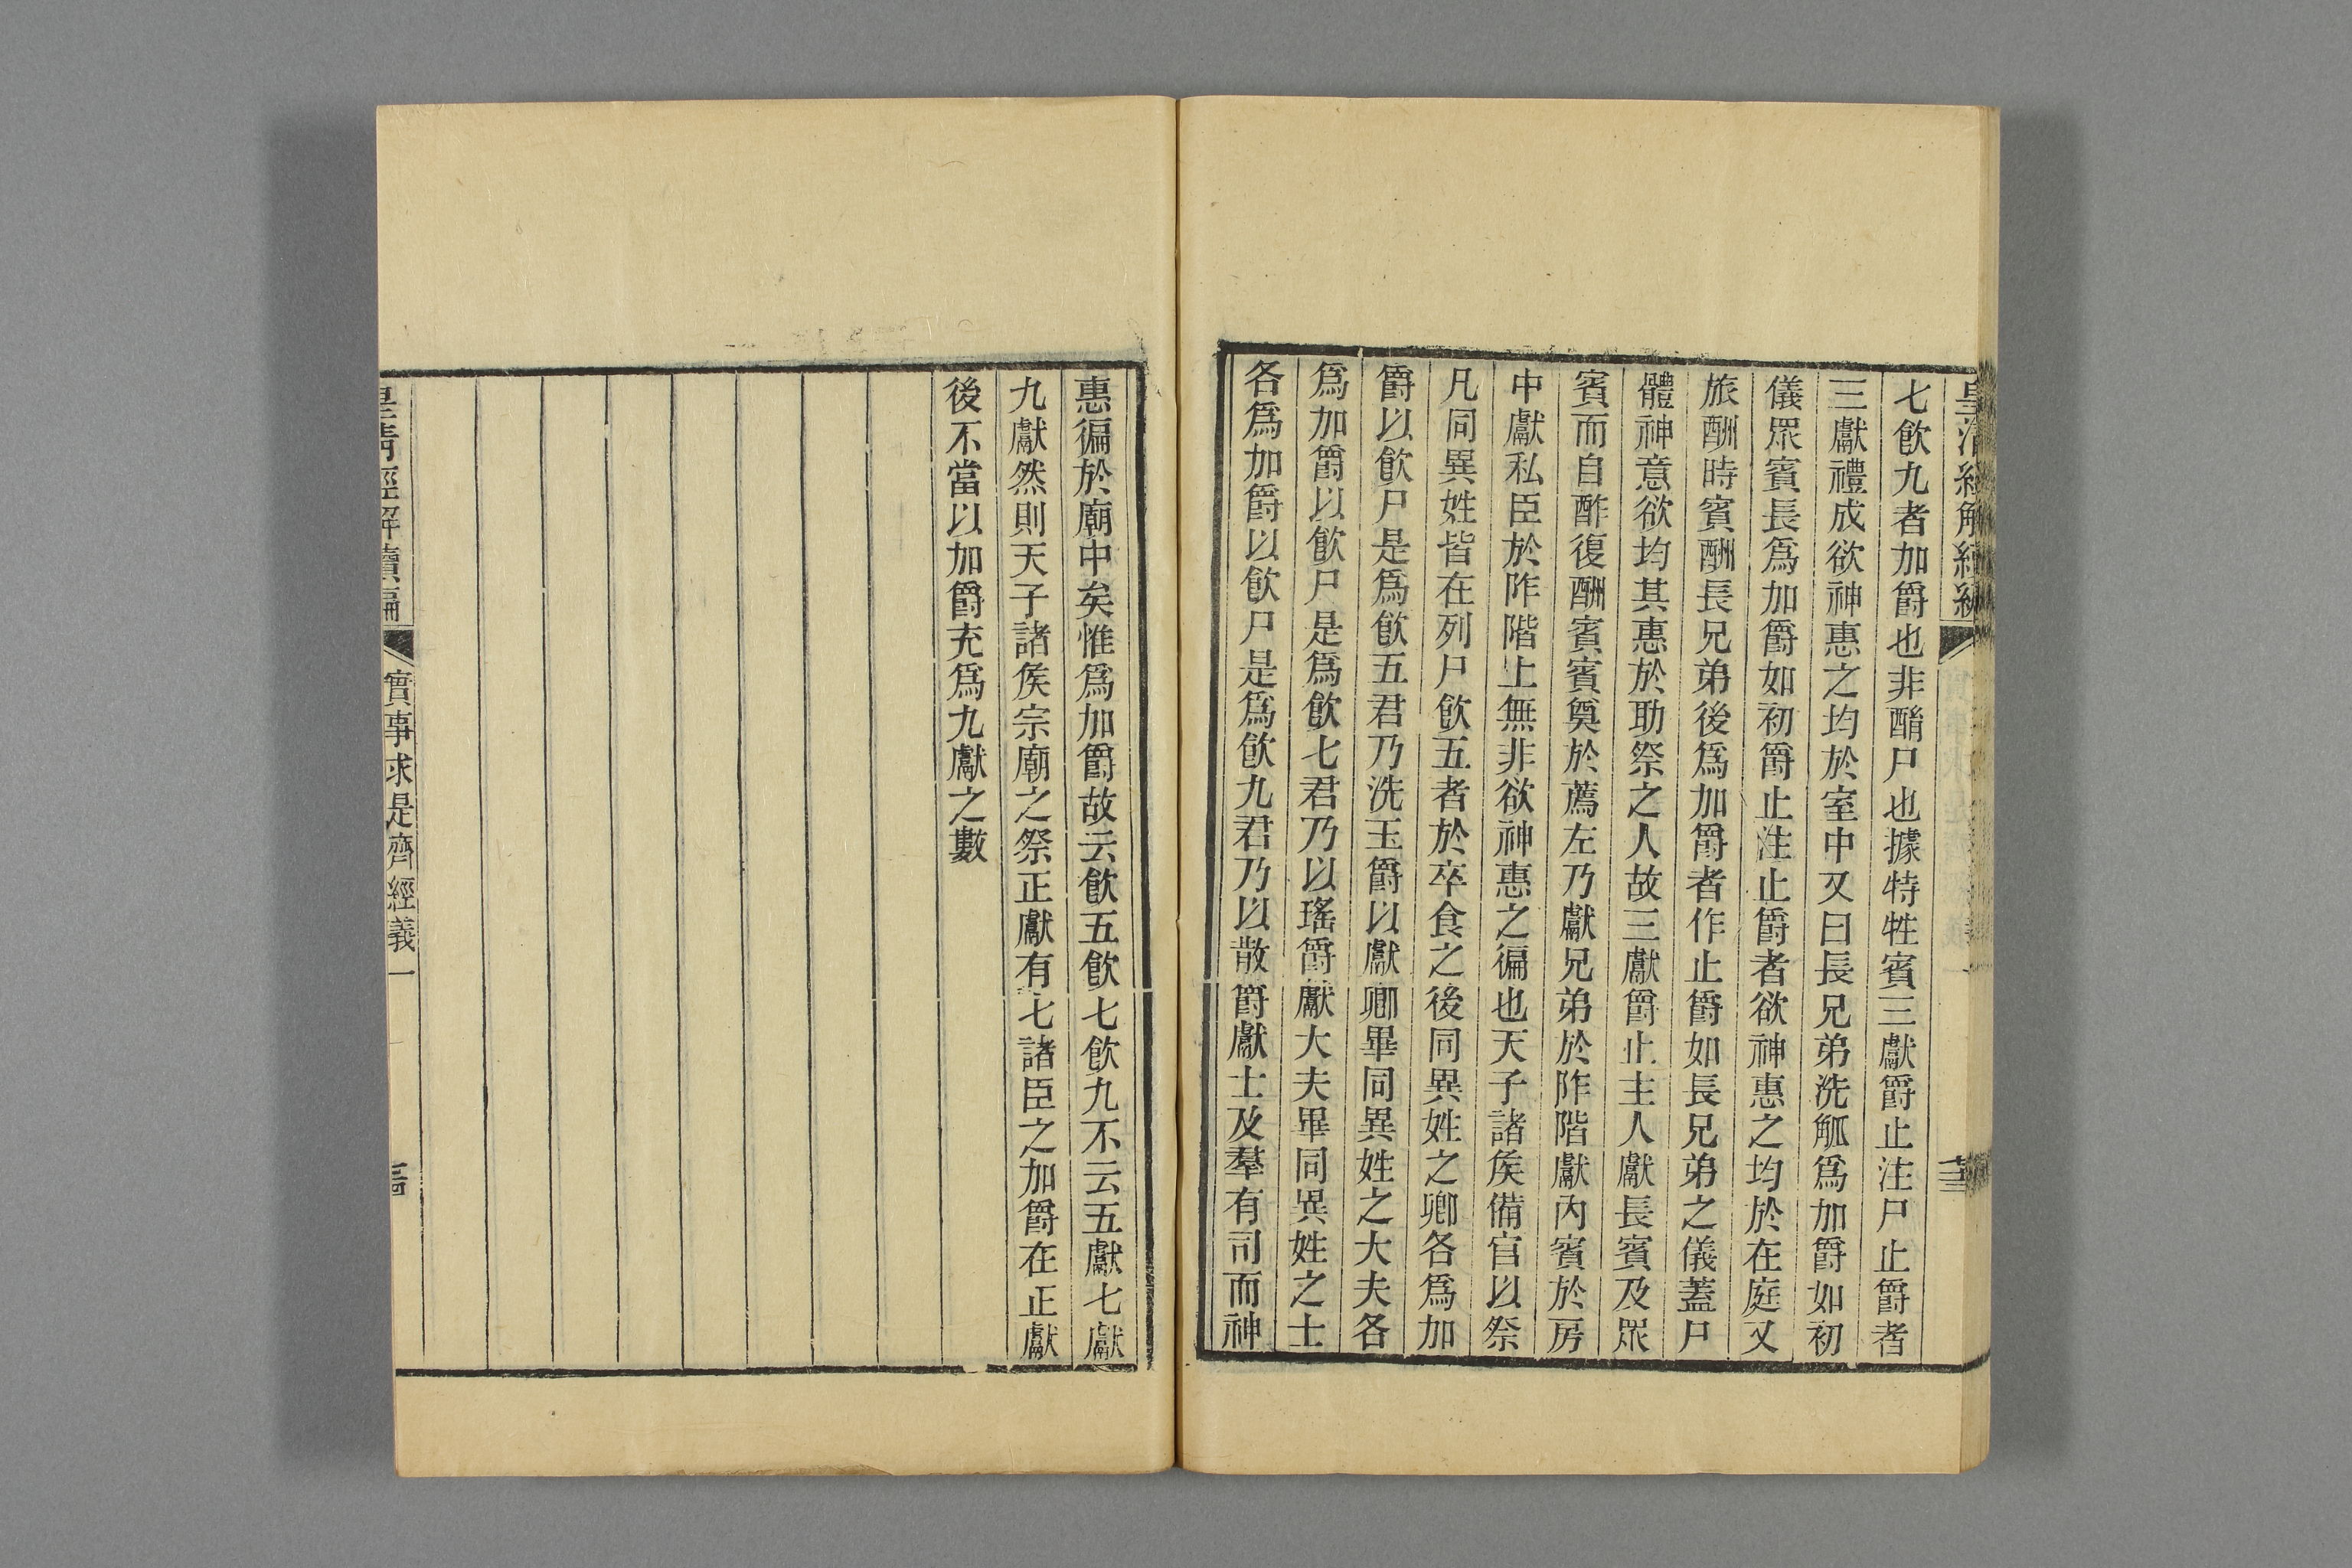 七飲九者加爵也非酳尸也據特牲賓三獻爵止注尸止爵者
三獻禮成欲神惠之均於室中又曰長兄弟洗觚爲加爵如初
儀眾賓長爲加爵如初爵止注止爵者欲神惠之均於在庭又
旅酬時賓酬長兄弟後爲加爵者作止爵如長兄弟之儀蓋尸
體神意欲均其惠於助祭之人故三獻爵止主人獻長賓及眾
賓而自酢復酬賓賓奠於薦左乃獻兄弟於阼階獻內賓於房
中獻私臣於阼階上無非欲神惠之徧也天子諸矦備官以祭
凡同異姓皆在列尸飲五者於卒食之後同異姓之卿各爲加
爵以飲尸是爲飲五君乃洗玉爵以獻卿畢同異姓之大夫各
爲加爵以飲尸是爲飲七君乃以瑤爵獻大夫畢同異姓之士
各爲加爵以飲尸是爲飲九君乃以散爵獻士及羣有司而神
惠徧於廟中矣惟爲加爵故云飲五飲七飲九不云五獻七獻
九獻然則天子諸矦宗廟之祭正獻有七諸臣之加爵在正獻
後不當以加爵充爲九獻之數
皇清經解續編
實事求是齋經義一